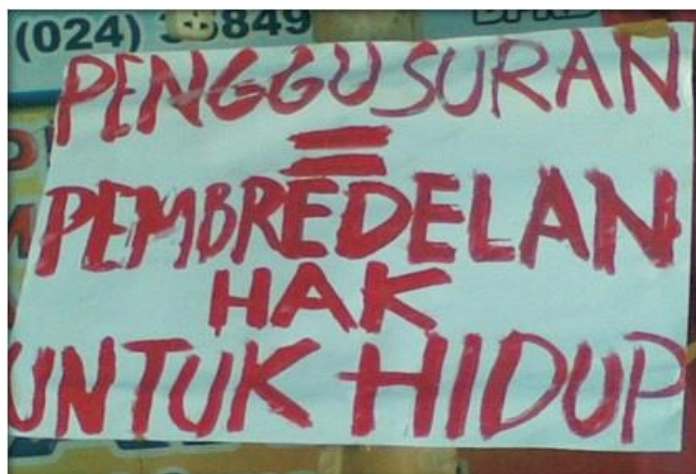 (024)
PENGGUSURAN
=
PEMBREDELAN
HAK
UNTUK HIDUP